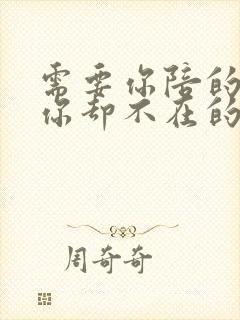 需要你陪的
你却不在的
周奇奇